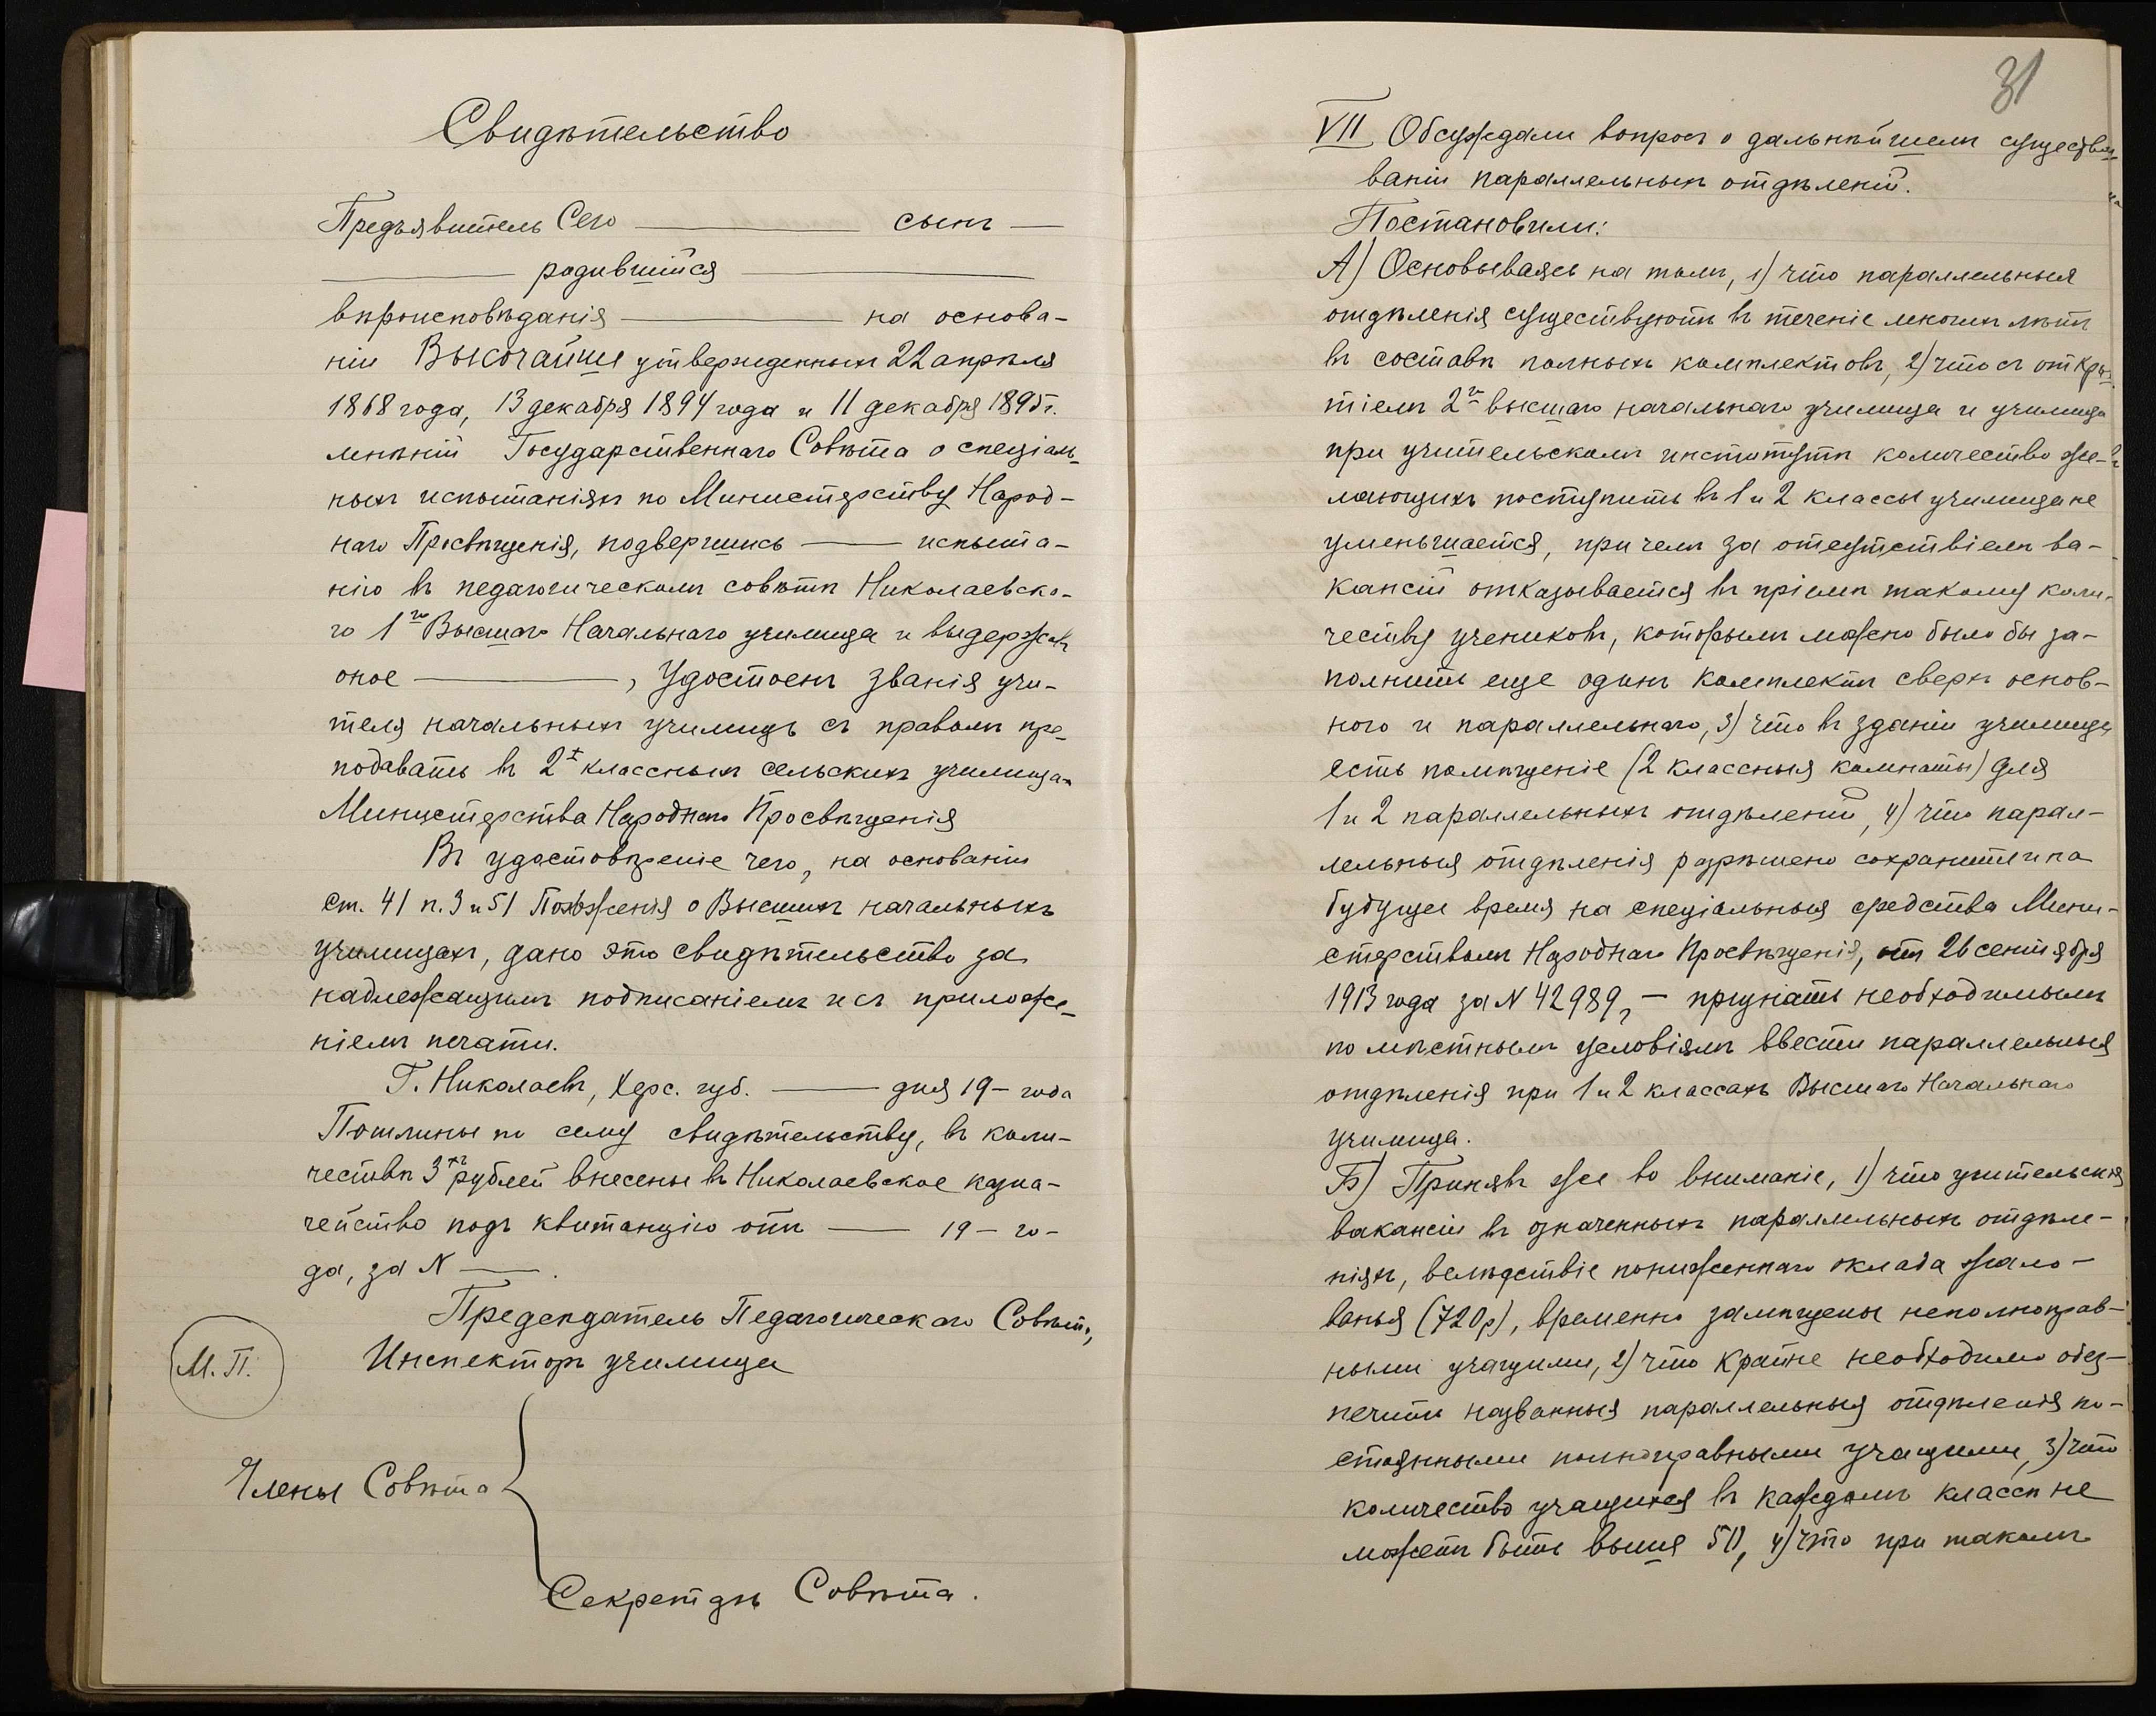 Свидѣтельство
Предъявитель Сего ——— сынъ —
——— родившійся ———
вѣроисповѣданія ——— на основа-
ніи Высочайше утвержденныхъ 22 апрѣля
1868 года, 13 декабря 1894 года и 11 декабря 1895 г.
мнѣній Государственнаго Совѣта о спеціаль-
ныхъ испытаніяхъ по Министерству Народ-
наго Просвѣщенія, подвергшись —— испыта-
нію въ педагогическомъ совѣтѣ Николаевска-
го 1го Высшаго Начальнаго училища и выдержавъ
оное ———, Удостоенъ званія учи-
теля начальныхъ училищъ съ правомъ пре-
подавать въ 2х классныхъ сельскихъ училищахъ
Министерства Народнаго Просвѣщенія
Въ удостовѣреніе чего, на основаніи
ст. 41 п. 3 и 51 Положенія о Высшихъ начальныхъ
училищахъ, дано это свидѣтельство за
надлежащимъ подписаніемъ и съ приложе-
ніемъ печати.
Г. Николаевъ, Херс. губ. —— дня 19— года
Пошлины по сему свидѣтельству, въ коли-
чествѣ 3хъ рублей внесены въ Николаевское казна-
чейство подъ квитанцію отъ —— 19— го-
да, за N ——.
Предсѣдатель Педагогическаго Совѣта,
М. П. Инспекторъ училища
Члены Совѣта
Секретарь Совѣта.
31
VII Обсуждали вопросъ о дальнѣйшемъ существо-
ваніи параллельныхъ отдѣленій.
Постановили:
А) Основываясь на томъ, 1) что параллельныя
отдѣленія существуютъ въ теченіе многихъ лѣтъ
въ составѣ полныхъ комплектовъ, 2) что съ откры-
тіемъ 2го высшаго начальнаго училища и училища
при учительскомъ институтѣ количество же-
лающихъ поступить въ 1 и 2 классы училища не
уменьшается, при чемъ за отсутствіемъ ва-
кансій отказывается въ пріемѣ такому коли-
честву учениковъ, которымъ можно было бы за-
полнить еще одинъ комплектъ сверхъ основ-
ного и параллельнаго, 3) что въ зданіи училища
есть помѣщеніе (2 классныя комнаты) для
1 и 2 параллельныхъ отдѣленій, 4) что парал-
лельныя отдѣленія разрѣшено сохранить и на
будущее время на спеціальныя средства Мини-
стерствомъ Народнаго Просвѣщенія, отъ 26 сентября
1913 года за N 42989, — признать необходимымъ
по мѣстнымъ условіямъ ввести параллельныя
отдѣленія при 1 и 2 классахъ Высшаго Начальнаго
училища.
Б) Принявъ же во вниманіе, 1) что учительскія
вакансіи въ означенныхъ параллельныхъ отдѣле-
ніяхъ, вслѣдствіе пониженнаго оклада жало-
ванья (720 р), временно замѣщены неполноправ-
ными учащими, 2) что крайне необходимо обез-
печить названныя параллельныя отдѣленія по-
стоянными полноправными учащими, 3) что
количество учащихся въ каждомъ классѣ не
можетъ быть выше 50, 4) что при такомъ